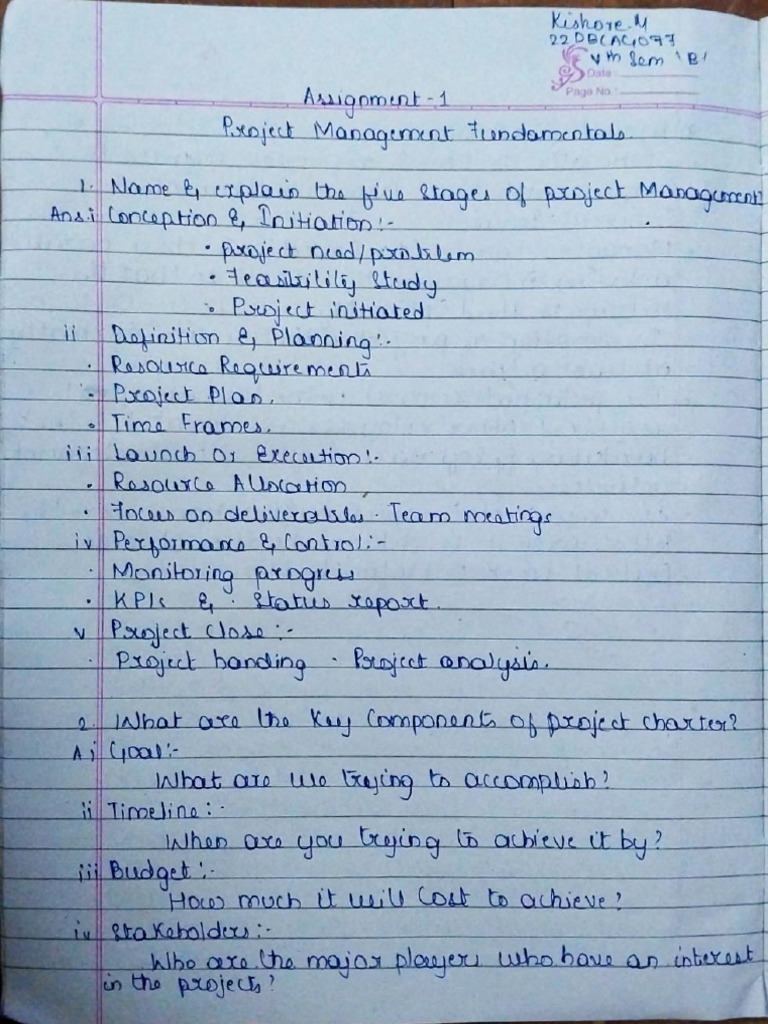 Kishore.M
22DBCAG077
Vth Sem 'B'
Date:
Page No.:
Assignment - 1
Project Management Fundamentals.
1. Name & explain the five stages of project Management?
Ans.i Conception & Initiation:-
• project need/problem
• Feasibility Study
• Project initiated
ii Definition & Planning:-
• Resource Requirements
• Project Plan.
• Time Frames.
iii Launch Or Execution:-
• Resource Allocation
• Focus on deliverables • Team meetings
iv Performance & Control:-
• Monitoring progress
• KPIs & • Status report.
v Project close:-
• Project handing • Project analysis.
2. What are the Key Components of project charter?
A i Goal:-
What are we trying to accomplish?
ii Timeline:-
When are you trying to achieve it by?
iii Budget:-
How much it will Cost to achieve?
iv Stakeholders:-
Who are the major players who have an interest
in the projects?